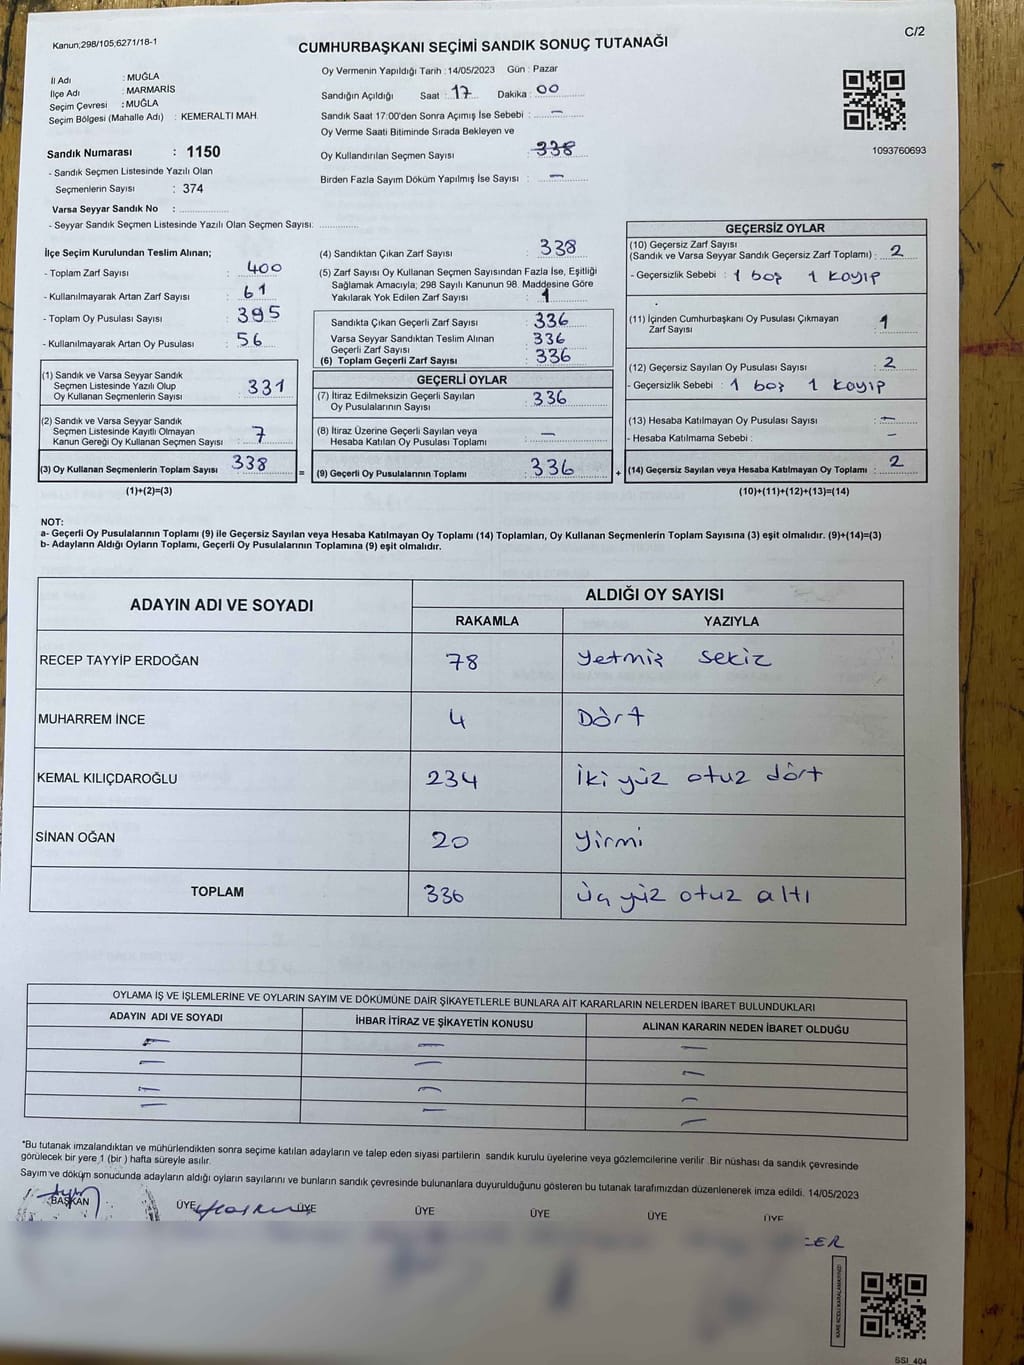 Kanun;298/105;6271/18-1
C/2
CUMHURBAŞKANI SEÇİMİ SANDIK SONUÇ TUTANAĞI
İl Adı : MUĞLA
İlçe Adı : MARMARİS
Seçim Çevresi : MUĞLA
Seçim Bölgesi (Mahalle Adı) : KEMERALTI MAH.
Sandık Numarası : 1150
- Sandık Seçmen Listesinde Yazılı Olan
Seçmenlerin Sayısı : 374
Varsa Seyyar Sandık No :
- Seyyar Sandık Seçmen Listesinde Yazılı Olan Seçmen Sayısı:
Oy Vermenin Yapıldığı Tarih : 14/05/2023 Gün : Pazar
Sandığın Açıldığı Saat : 17 Dakika : 00
Sandık Saat 17:00'den Sonra Açımış İse Sebebi : —
Oy Verme Saati Bitiminde Sırada Bekleyen ve
Oy Kullandırılan Seçmen Sayısı : 338
Birden Fazla Sayım Döküm Yapılmış İse Sayısı : —
1093760693
İlçe Seçim Kurulundan Teslim Alınan;
- Toplam Zarf Sayısı : 400
- Kullanılmayarak Artan Zarf Sayısı : 61
- Toplam Oy Pusulası Sayısı : 395
- Kullanılmayarak Artan Oy Pusulası : 56
(1) Sandık ve Varsa Seyyar Sandık
Seçmen Listesinde Yazılı Olup
Oy Kullanan Seçmenlerin Sayısı : 331
(2) Sandık ve Varsa Seyyar Sandık
Seçmen Listesinde Kayıtlı Olmayan
Kanun Gereği Oy Kullanan Seçmen Sayısı : 7
(3) Oy Kullanan Seçmenlerin Toplam Sayısı : 338
(1)+(2)=(3)
(4) Sandıktan Çıkan Zarf Sayısı : 338
(5) Zarf Sayısı Oy Kullanan Seçmen Sayısından Fazla İse, Eşitliği
Sağlamak Amacıyla; 298 Sayılı Kanunun 98. Maddesine Göre
Yakılarak Yok Edilen Zarf Sayısı : 1
Sandıkta Çıkan Geçerli Zarf Sayısı : 336
Varsa Seyyar Sandıktan Teslim Alınan
Geçerli Zarf Sayısı : 336
(6) Toplam Geçerli Zarf Sayısı : 336
GEÇERLİ OYLAR
(7) İtiraz Edilmeksizin Geçerli Sayılan
Oy Pusulalarının Sayısı : 336
(8) İtiraz Üzerine Geçerli Sayılan veya
Hesaba Katılan Oy Pusulası Toplamı : —
= (9) Geçerli Oy Pusulalarının Toplamı : 336
GEÇERSİZ OYLAR
(10) Geçersiz Zarf Sayısı
(Sandık ve Varsa Seyyar Sandık Geçersiz Zarf Toplamı) : 2
- Geçersizlik Sebebi : 1 boş 1 kayıp
(11) İçinden Cumhurbaşkanı Oy Pusulası Çıkmayan
Zarf Sayısı : 1
(12) Geçersiz Sayılan Oy Pusulası Sayısı : 2
- Geçersizlik Sebebi : 1 boş 1 kayıp
(13) Hesaba Katılmayan Oy Pusulası Sayısı : —
- Hesaba Katılmama Sebebi : —
+ (14) Geçersiz Sayılan veya Hesaba Katılmayan Oy Toplamı : 2
(10)+(11)+(12)+(13)=(14)
NOT:
a- Geçerli Oy Pusulalarının Toplamı (9) ile Geçersiz Sayılan veya Hesaba Katılmayan Oy Toplamı (14) Toplamları, Oy Kullanan Seçmenlerin Toplam Sayısına (3) eşit olmalıdır. (9)+(14)=(3)
b- Adayların Aldığı Oyların Toplamı, Geçerli Oy Pusulalarının Toplamına (9) eşit olmalıdır.
ADAYIN ADI VE SOYADI ALDIĞI OY SAYISI
RAKAMLA YAZIYLA
RECEP TAYYİP ERDOĞAN 78 Yetmiş sekiz
MUHARREM İNCE 4 Dört
KEMAL KILIÇDAROĞLU 234 İki yüz otuz dört
SİNAN OĞAN 20 Yirmi
TOPLAM 336 Üç yüz otuz altı
OYLAMA İŞ VE İŞLEMLERİNE VE OYLARIN SAYIM VE DÖKÜMÜNE DAİR ŞİKAYETLERLE BUNLARA AİT KARARLARIN NELERDEN İBARET BULUNDUKLARI
ADAYIN ADI VE SOYADI İHBAR İTİRAZ VE ŞİKAYETİN KONUSU ALINAN KARARIN NEDEN İBARET OLDUĞU
— — —
— — —
— — —
— — —
*Bu tutanak imzalandıktan ve mühürlendikten sonra seçime katılan adayların ve talep eden siyasi partilerin sandık kurulu üyelerine veya gözlemcilerine verilir .Bir nüshası da sandık çevresinde
görülecek bir yere 1 (bir ) hafta süreyle asılır.
Sayım ve döküm sonucunda adayların aldığı oyların sayılarını ve bunların sandık çevresinde bulunanlara duyurulduğunu gösteren bu tutanak tarafımızdan düzenlenerek imza edildi. 14/05/2023
BAŞKAN ÜYE ÜYE ÜYE ÜYE ÜYE ÜYE
KARE KODU KARALAMAYINIZ!
BSI_404